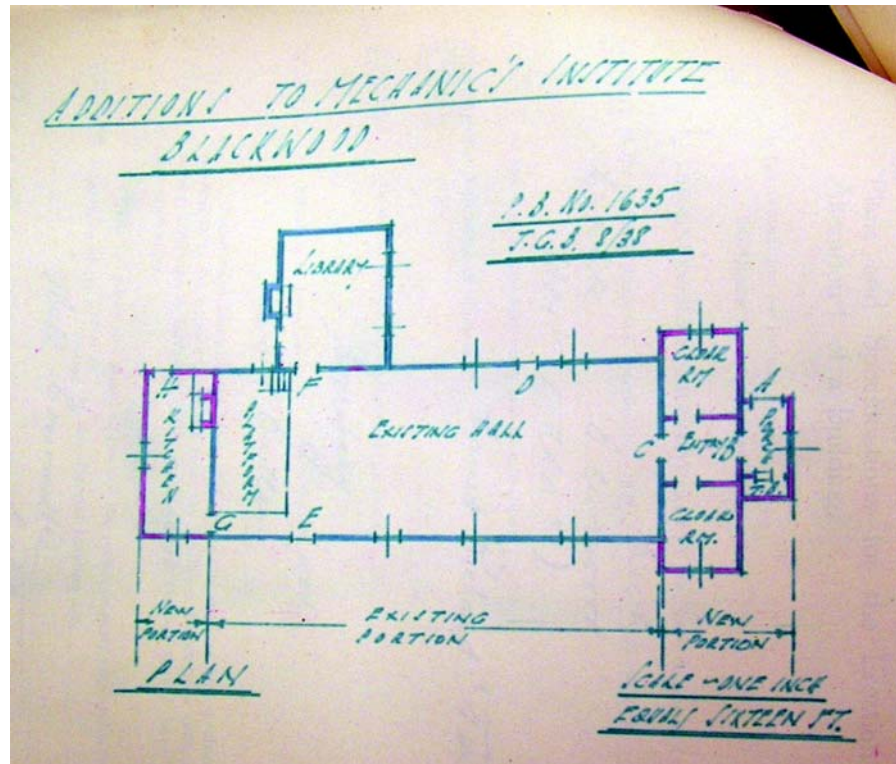 ADDITIONS TO MECHANIC'S INSTITUTE
BLACKWOOD
P.B. No. 1635
J.G.B. 8/38
LIBRARY
CLOAK
RM
A
H
F
D
PORCH
KITCHEN
PLATFORM
EXISTING HALL
C
ENTRY
B
T.B.
G
E
CLOAK
RM.
NEW
PORTION
EXISTING
PORTION
NEW
PORTION
PLAN
SCALE ~ ONE INCH
EQUALS SIXTEEN FT.